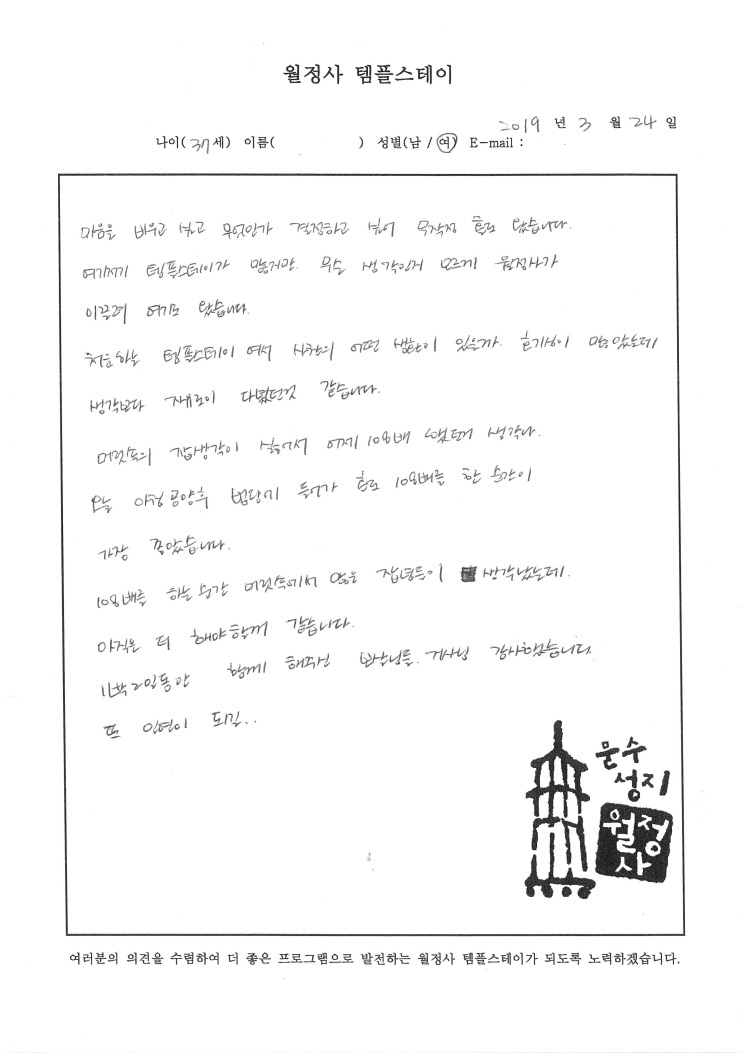 월정사 템플스테이
2019 년 3 월 24 일
나이( 37 세) 이름( ) 성별(남 / 여) E-mail :
마음을 비우고 싶고 무엇인가 결정하고 싶어 무작정 홀로 왔습니다.
여기저기 템플스테이가 많지만. 무슨 생각인지 모르게 월정사가
이끌려 여기로 왔습니다.
처음하는 템플스테이 여서 사찰의 어떤 생활이 있을까. 호기심이 많았는데
생각보다 자유로이 다녔던것 같습니다.
머릿속의 잡생각이 싫어서 어제 108배 했던때 생각나.
오늘 아침 공양후 법당에 들어가 홀로 108배를 한 순간이
가장 좋았습니다.
108배를 하는 순간 머릿속에서 많은 잡념들이 생각났는데.
아직은 더 해야할께 같습니다.
1박2일동안 함께 해주신 보살님들. 거사님 감사했습니다.
또 인연이 되길..
문수
성지
월정
사
여러분의 의견을 수렴하여 더 좋은 프로그램으로 발전하는 월정사 템플스테이가 되도록 노력하겠습니다.